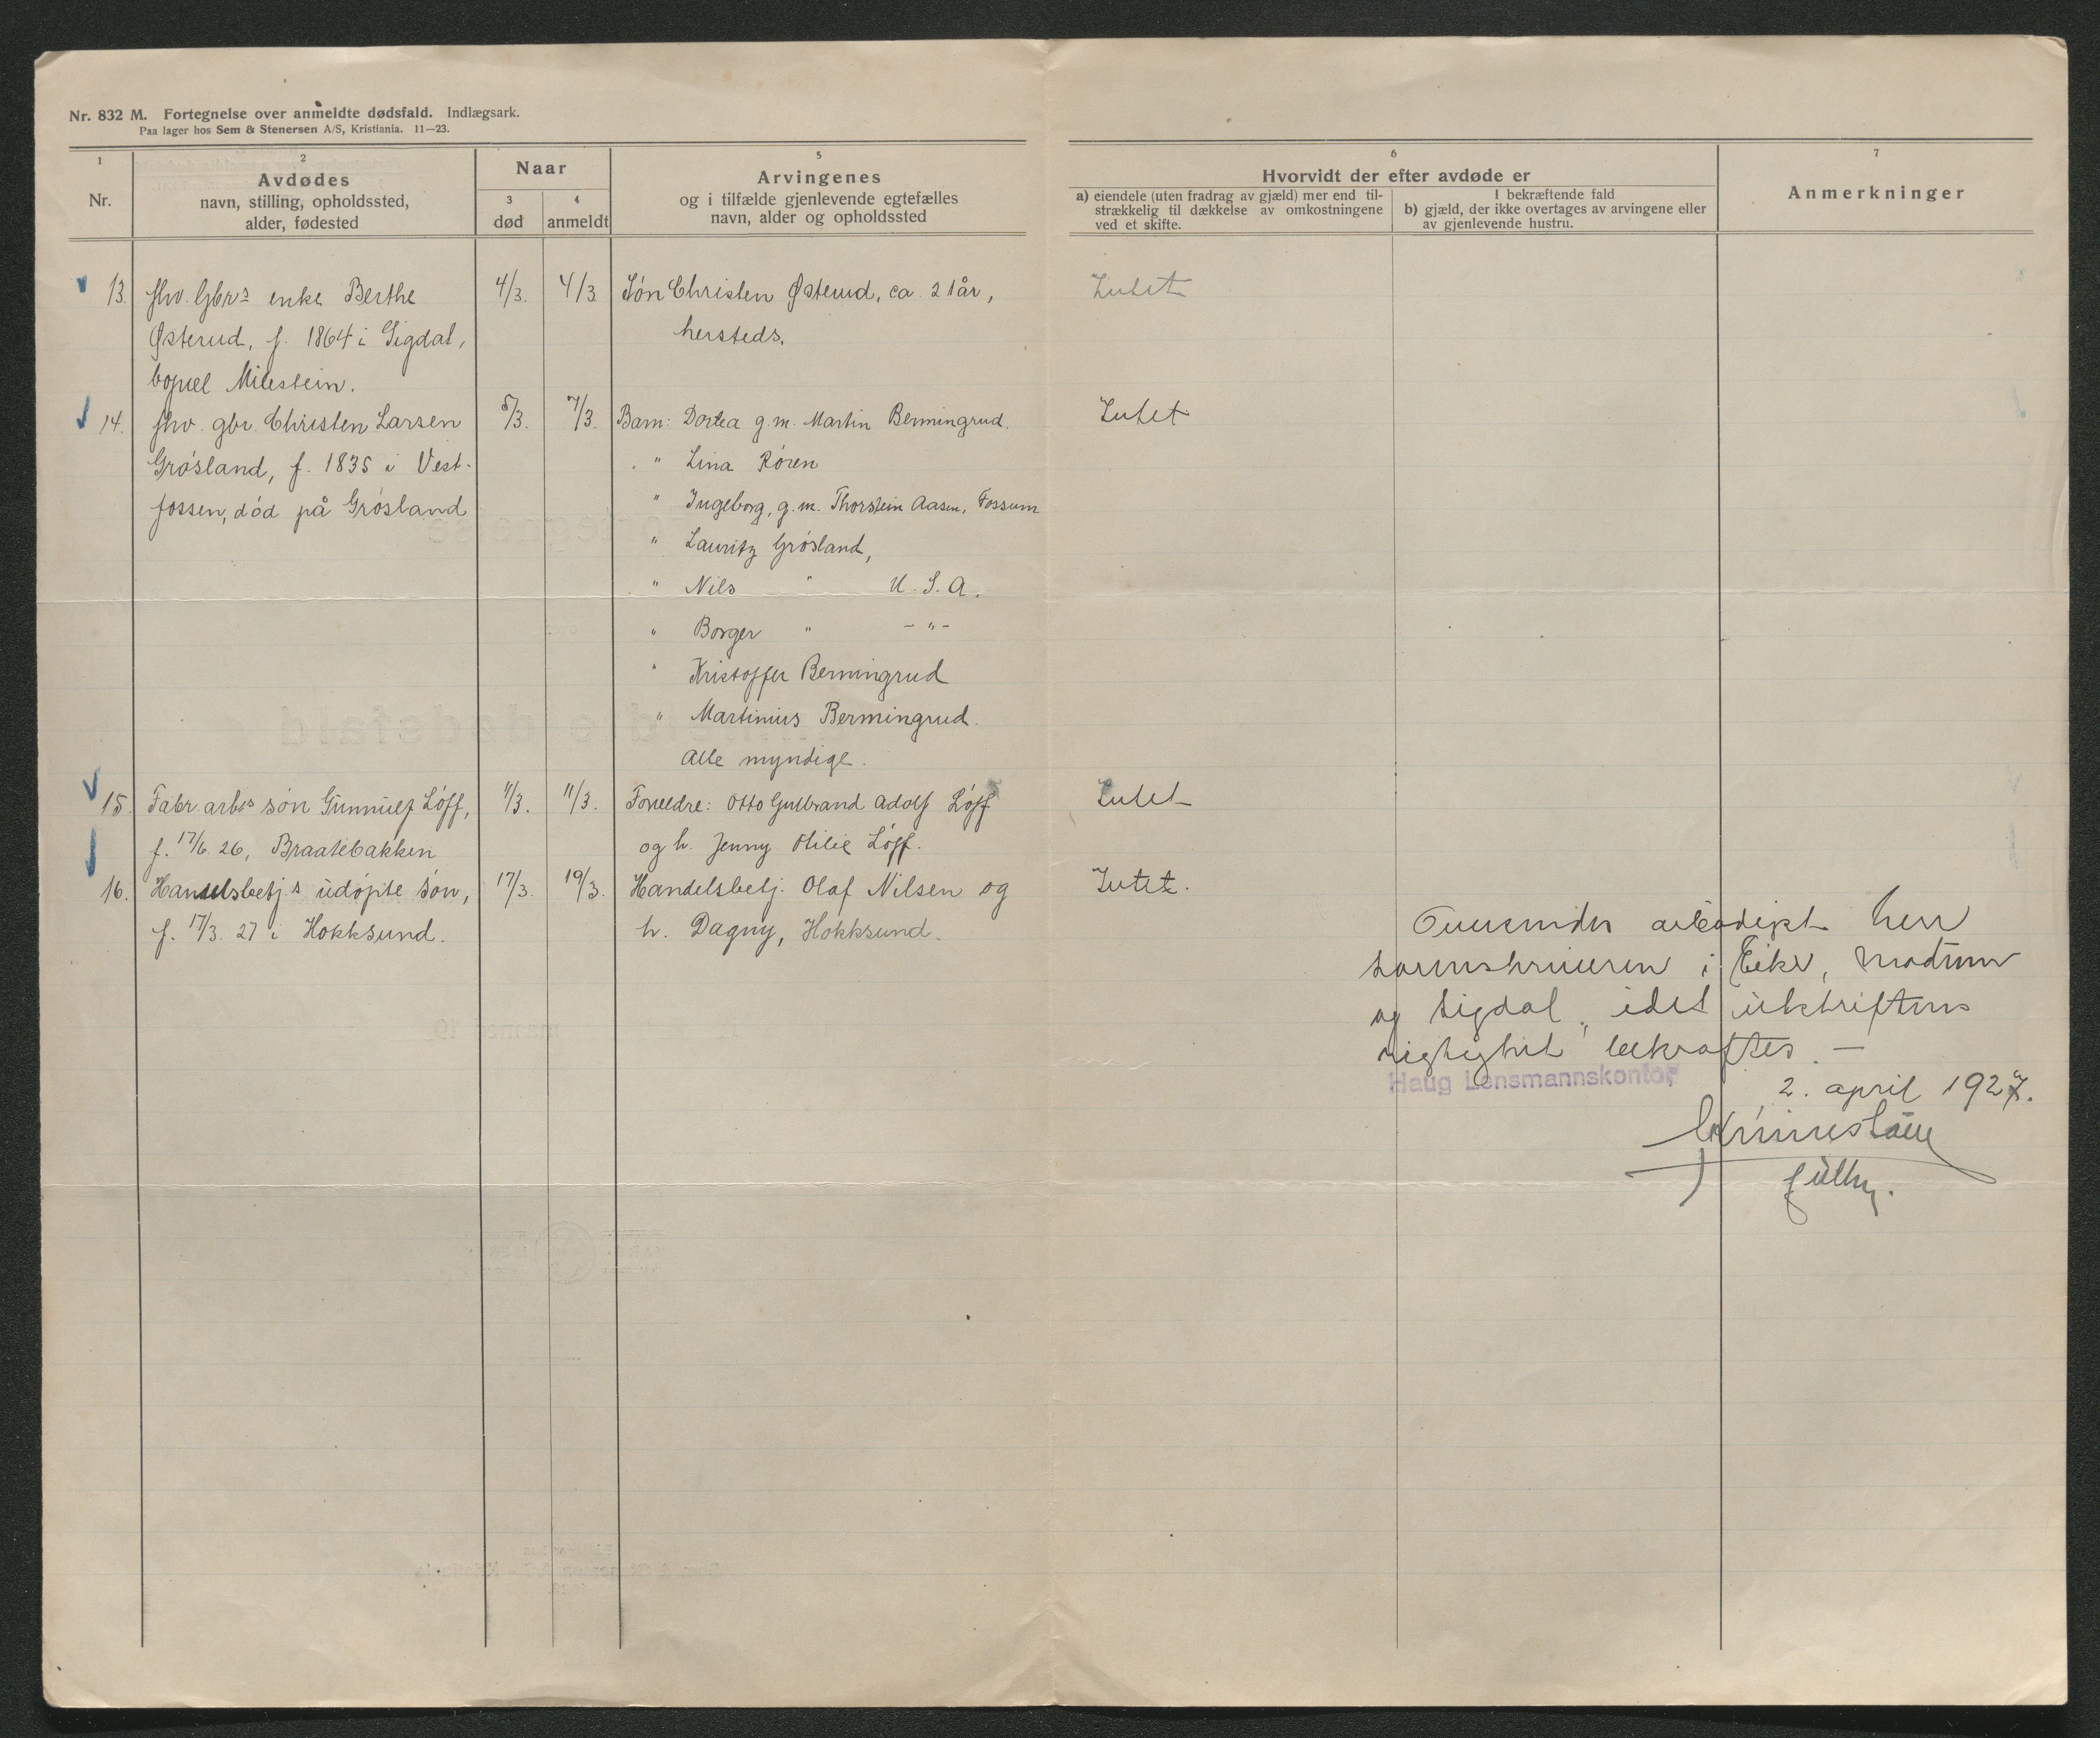 Nr. 832 M. Fortegnelse over anmeldte dødsfald. Indlægsark.
Paa lager hos Sem & Stenersen A/S, Kristiania. 11—23.
1
Nr.
2
Avdødes
navn, stilling, opholdssted,
alder, fødested
Naar
3
død
4
anmeldt
5
Arvingenes
og i tilfælde gjenlevende egtefælles
navn, alder og opholdssted
6
Hvorvidt der efter avdøde er
a) eiendele (uten fradrag av gjæld) mer end til-
strækkelig til dækkelse av omkostningene
ved et skifte.
I bekræftende fald
b) gjæld, der ikke overtages av arvingene eller
av gjenlevende hustru.
7
Anmerkninger
13. fhv. Gbrs enke Berthe 4/3. 4/3 Søn Christen Østerud, ca. 21 år, Intet
Østerud, f. 1864 i Sigdal, hersteds.
bopæl Milestein.
14. fhv. gbr. Christen Larsen 5/3. 7/3. Barn: Dortea g.m. Martin Bermingrud. Intet
Grøsland, f. 1835 i Vest- " Lina Røren
fossen, død på Grøsland " Ingeborg, g.m. Thorstein Aasen, Fossum
" Lauritz Grøsland,
" Nils " U.S.A.
" Borger " - " -
" Kristoffer Bermingrud
" Martinius Bermingrud.
Alle myndige.
15. Fabr.arbs søn Gunnulf Løff, 11/3. 11/3. Foreldre: Otto Gulbrand Adolf Løff Intet
f. 17/6. 26, Braatebakken og h. Jenny Otilie Løff.
16. Handelsbetj.s udøpte søn, 17/3. 19/3. Handelsbetj. Olaf Nilsen og Intet.
f. 17/3. 27 i Hokksund. h. Dagny, Hokksund.
Oversendes ærbødigst herr
sorenskriveren i Eiker, Modum
og Sigdal, idet utskriftens
rigtighet bekræftes. —
Haug Lensmannskontor, 2. april 1927.